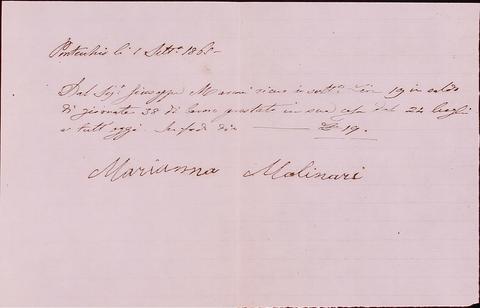 Pontecchio li 1 Sett.e 1865
Dal Sig.r Giuseppe Marmi ricevo io sott.a Lire 19 in saldo
di giornate 38 di lavoro prestato in sua casa dal 24 luglio
a tutt'oggi. In fede dico £ 19.
Marianna Molinari